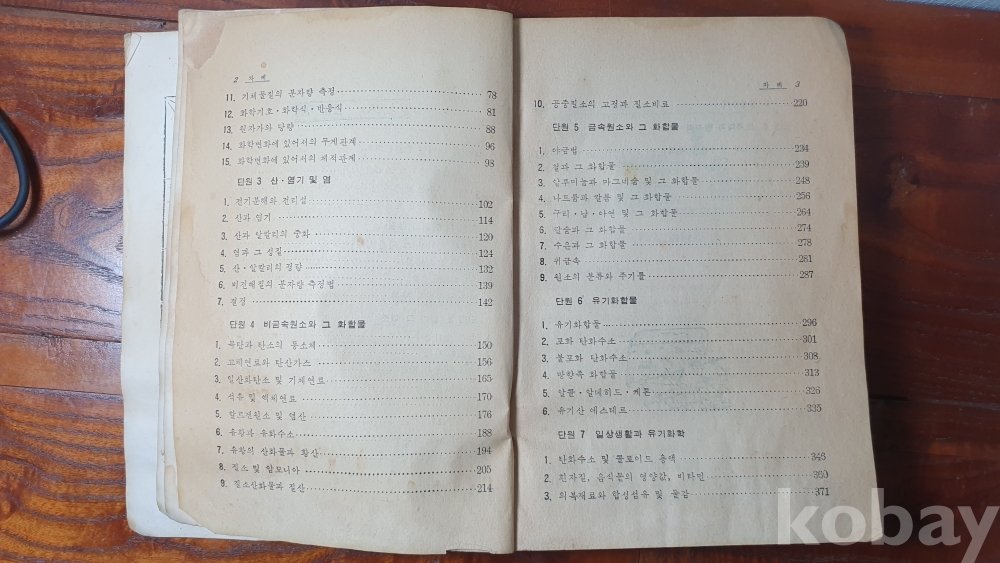 2 차 례
11. 기체물질의 분자량 측정 78
12. 화학기호·화학식·반응식 81
13. 원자가와 당량 88
14. 화학변화에 있어서의 무게관계 96
15. 화학변화에 있어서의 체적관계 98
단원 3 산·염기 및 염
1. 전기분해와 전리설 102
2. 산과 염기 114
3. 산과 알칼리의 중화 120
4. 염과 그 성질 124
5. 산·알칼리의 정량 132
6. 비전해질의 분자량 측정법 139
7. 결정 142
단원 4 비금속원소와 그 화합물
1. 목탄과 탄소의 동소체 150
2. 고체연료와 탄산가스 156
3. 일산화탄소 및 기체연료 165
4. 석유 및 액체연료 170
5. 할로겐원소 및 염산 176
6. 유황과 유화수소 188
7. 유황의 산화물과 황산 194
8. 질소 및 암모니아 205
9. 질소산화물과 질산 214
차 례 3
10. 공중질소의 고정과 질소비료 220
단원 5 금속원소와 그 화합물
1. 야금법 234
2. 철과 그 화합물 239
3. 알루미늄과 마그네슘 및 그 화합물 248
4. 나트륨과 칼륨 및 그 화합물 256
5. 구리·납·아연 및 그 화합물 264
6. 칼슘과 그 화합물 274
7. 수은과 그 화합물 278
8. 귀금속 281
9. 원소의 분류와 주기률 287
단원 6 유기화합물
1. 유기화합물 296
2. 포화 탄화수소 301
3. 불포화 탄화수소 308
4. 방향족 화합물 313
5. 알콜·알데히드·케톤 326
6. 유기산 에스테르 335
단원 7 일상생활과 유기화학
1. 탄화수소 및 콜로이드 용액 348
2. 흰자질, 음식물의 영양값, 비타민 360
3. 의복재료와 합성섬유 및 물감 371
kobay